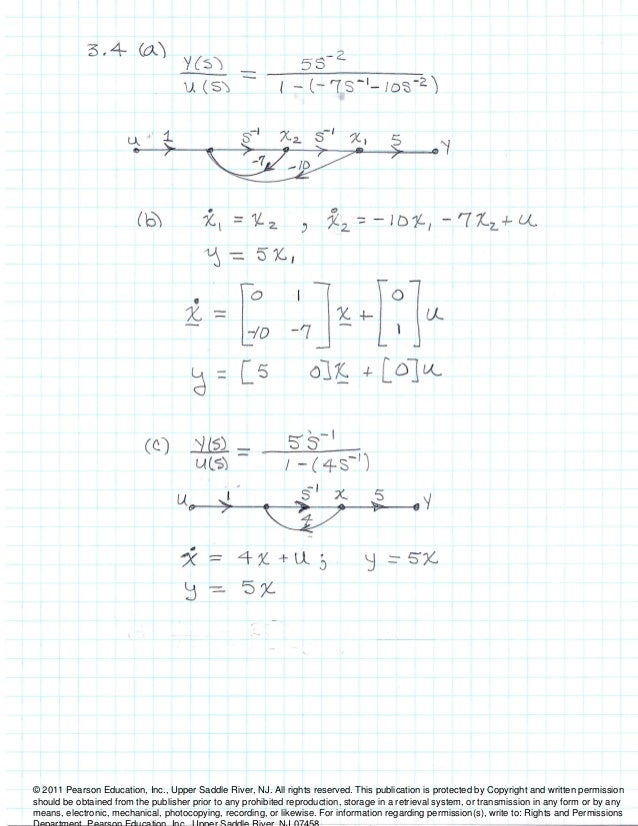 3.4 (a) Y(S)/U(S) = 5S⁻²/1-(-7S⁻¹-10S⁻²)
u 1 S⁻¹ x₂ S⁻¹ x₁ 5 Y
-7 -10
(b) ẋ₁ = x₂ , ẋ₂ = -10x₁ - 7x₂ + u
y = 5x₁
ẋ = [0 1; -10 -7] x + [0; 1] u
y = [5 0]x + [0]u
(c) Y(S)/U(S) = 5S⁻¹/1-(4S⁻¹)
u 1 S⁻¹ x 5 Y
4
ẋ = 4x + u ; y = 5x
y = 5x
© 2011 Pearson Education, Inc., Upper Saddle River, NJ. All rights reserved. This publication is protected by Copyright and written permission
should be obtained from the publisher prior to any prohibited reproduction, storage in a retrieval system, or transmission in any form or by any
means, electronic, mechanical, photocopying, recording, or likewise. For information regarding permission(s), write to: Rights and Permissions
Department, Pearson Education, Inc., Upper Saddle River, NJ 07458